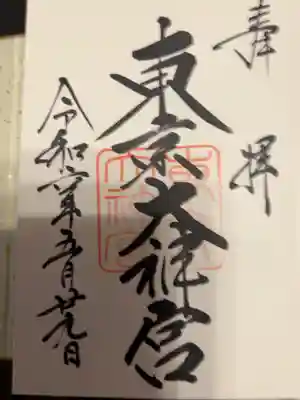 奉拝
東京大神宮
令和六年五月廿九日